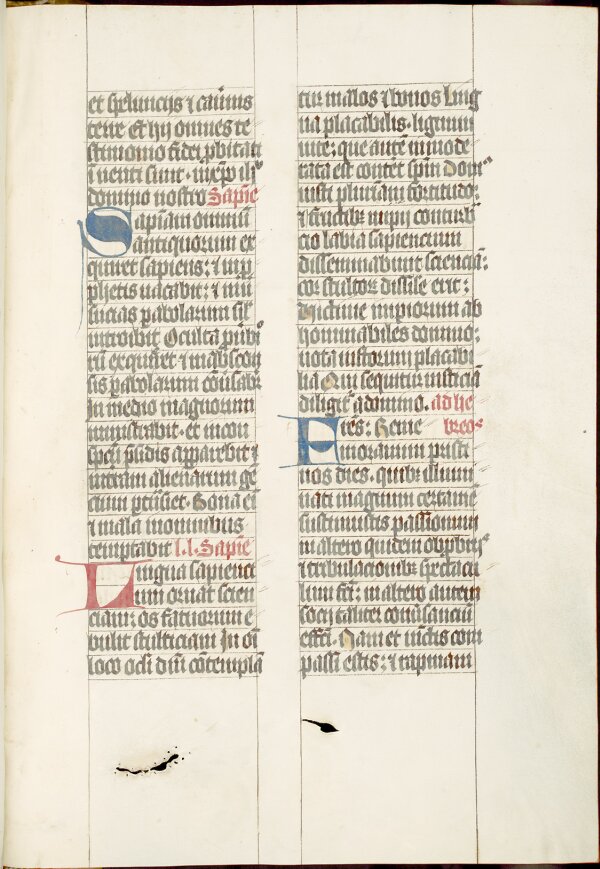 et speluncijs ⁊ cauernis
terre Et hij omnes te
stimonio fidei ꝓbitati
inuenti sunt · in xp̄o ih̄u
domino nostro Sapie
Sapiam omniū
antiquorum ex
quiret sapiens : ⁊ in ꝓ
phetis uacabit : ⁊ in uer
sucias ꝑabolarum sil̄
introibit Occulta ꝓubi
rū exquiret ⁊ in abscon
sis ꝑabolarum cōūsabit̄
In medio magnorum
ministrabit · et in con
spcū p̄sidis apparebit ⁊
in terram alienarum gē
cium ꝑtrāsiet · Bona em̄
⁊ mala in omnibus
temptabit l. l. Sapie
Lingua sapienci
um ornat scien
ciam : os fatuorum e
bulit stulticiam In om̄i
loco oc̄li dn̄i cōtemplā
tur malos ⁊ bonos Ling
ua placabilis · lignum
uite : que autē inmode
rata est conteret spm̄ Domꝰ
iusti plurima fortitudo :
⁊ in fructibꝫ impij conturba
cio labia sapiencium
disseminabunt scienciā :
cor stultoꝝ dissile erit :
Victime impiorum ab
hominabiles domino :
uota iustorum placabi
lia Qui sequitur iusticiā
diligit᷑ a domino . ad he
Fres : Reme breos
moramini pristi
nos dies . quibꝫ illumi
nati magnum certamē
sustinuistis passionum
in altero quidem obꝓbrijs
⁊ tribulacionibꝫ spectacu
lum fc̄i : in altero autem
socij taliter conūsanciū
effc̄i · Nam et uinctis com
passi estis : ⁊ rapinam